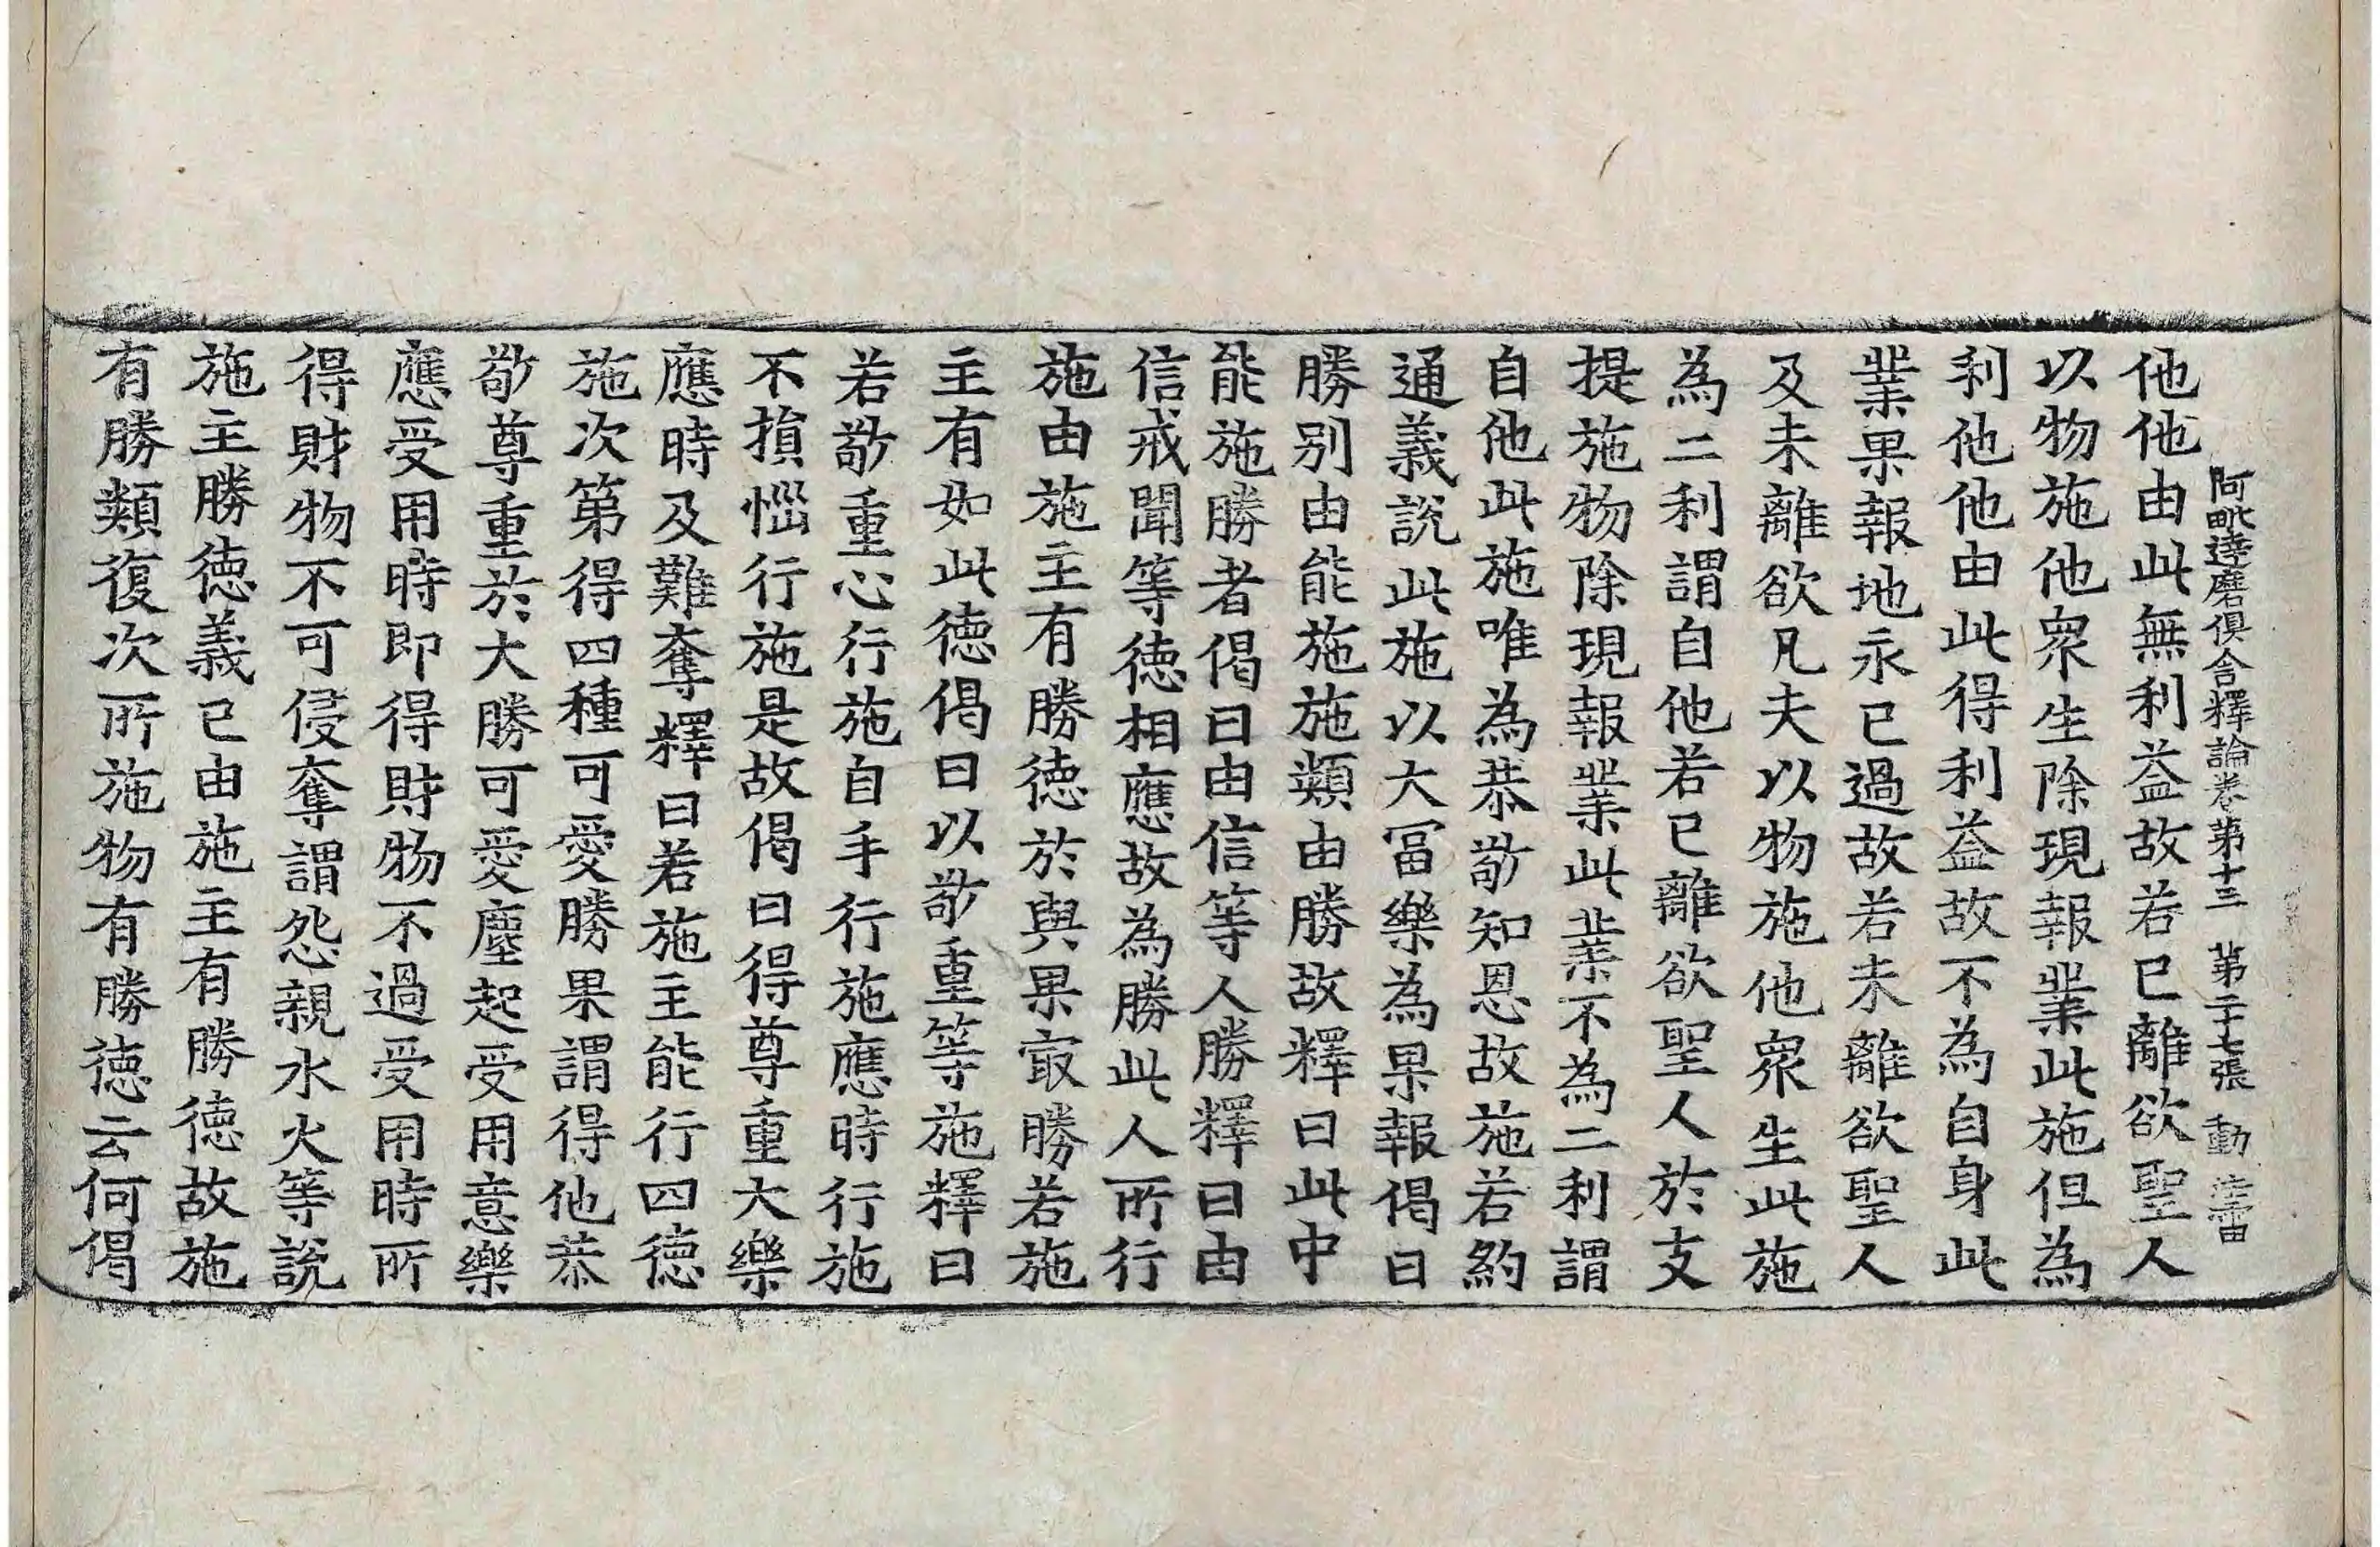 阿毗達磨俱舍釋論卷第十三 第二十七張 動
他他由此無利益故若已離欲聖人
以物施他衆生除現報業此施但為
利他他由此得利益故不為自身此
業果報地永已過故若未離欲聖人
及未離欲凡夫以物施他衆生此施
為二利謂自他若已離欲聖人於支
提施物除現報業此業不為二利謂
自他此施唯為恭敬知恩故施若約
通義說此施以大冨樂為果報偈曰
勝別由能施施類由勝故釋曰此中
能施勝者偈曰由信等人勝釋曰由
信戒聞等徳相應故為勝此人所行
施由施主有勝徳於與果㝡勝若施
主有如此徳偈曰以敬重等施釋曰
若敬重心行施自手行施應時行施
不損惱行施是故偈曰得尊重大樂
應時及難奪釋曰若施主能行四徳
施次第得四種可愛勝果謂得他恭
敬尊重於大勝可愛塵起受用意樂
應受用時即得財物不過受用時所
得財物不可侵奪謂怨親水火等說
施主勝徳義已由施主有勝徳故施
有勝類復次所施物有勝徳云何偈